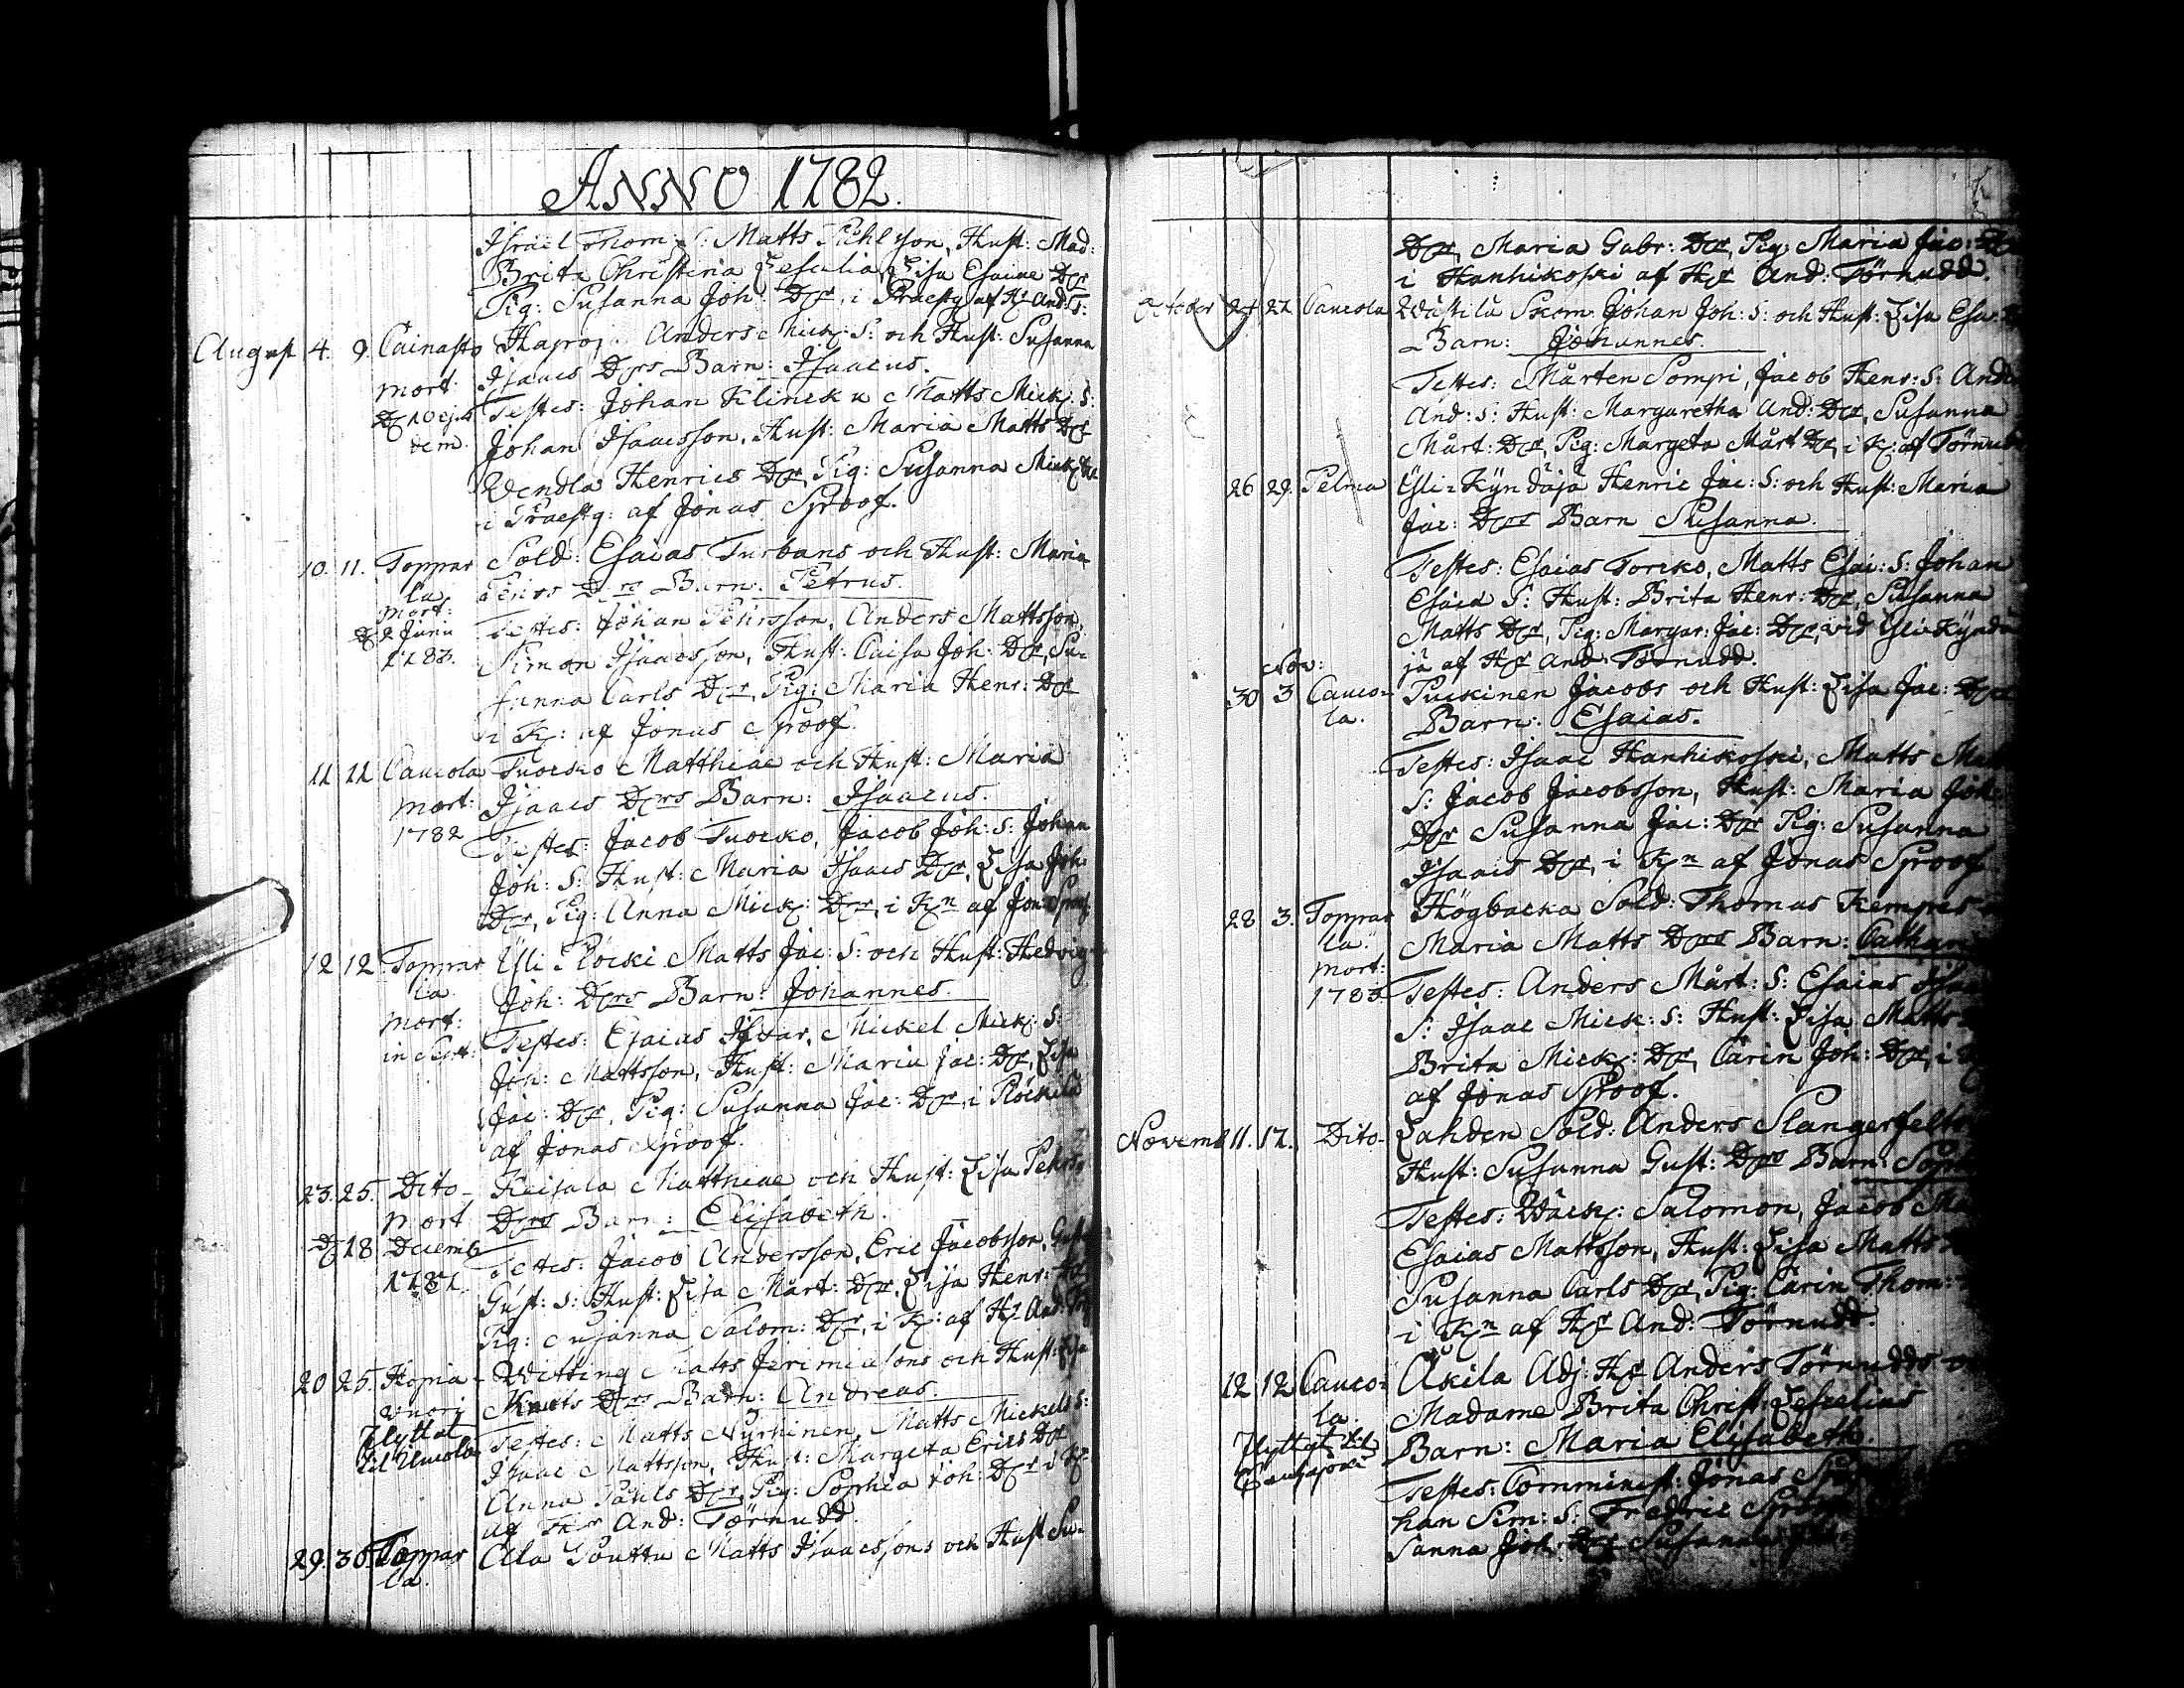 ANNO 1782.
Israel Thom: S: Matts Pihl son, Hust: Mad:
Brita Christina Lesc­elia, Lisa Esaiae Dr
Pig: Susanna Joh: Dr, i Praestg: af Hr And: T:
August 4. 9. Cainasto Haproj. Anders Mick: S: och Hust: Susanna
mort: Isaacs Drs Barn: Isaacus.
D 10 ejus Testes: Johan Klinck u Matts Mick: S:
dem. Johan Isaacsson, Hust: Maria Matts Dr
Vendla Henrics Dr, Pig: Susanna Mick: Dr
i Praestg: af Jonas Sproof.
10. 11. Toppar Sold: Esaias Turbans och Hust: Maria
la Pehrs Drs Barn: Petrus.
mort: Testes: Johan Pehrsson, Anders Mattsson,
D 2 Junii
1783. Simon Isaacsson, Hust: Caisa Joh: Dr, Su-
sanna Carls Dr, Pig: Maria Henr: Dr
i K: af Jonas Sproof.
11 11 Caucola Tuocko Matthiae och Hust: Maria
mort: Isaacs Drs Barn: Isaacus.
1782 Testes: Jacob Tuocko, Jacob Joh: S: Johan
Joh: S: Hust: Maria Isaacs Dr, Lisa Joh:
Dr, Pig: Anna Mick: Dr, i Kn af Jon: Sproof
12 12 Toppar Yli Plöcki Matts Jac: S: och Hust: Hedvig
la Joh: Drs Barn: Johannes.
mort: Testes: Esaias Isvar, Mickel Mick: S:
in Sept: Joh: Mattsson, Hust: Maria Jac: Dr, Lisa
Jac: Dr, Pig: Susanna Jac: Dr, i Plöckilä
af Jonas Sproof.
23. 25. Dito - Keisala Matthiae och Hust: Lisa Pehrs
mort Drs Barn: Elisabeth.
D 18 Decemb Testes: Jacob Andersson, Eric Jacobsson, Gust:
1782. Gust: S: Hust: Lisa Mårt: Dr, Lisa Henr: Dr
Pig: Susanna Salom: Dr, i K: af Hr And:
20 25. Hopia- Witting Matts Jerimiasons och Hust: Lisa
vuori Knuts Drs Barn: Andreas.
Flyttat Testes: Matts Nyrhinen, Matts Mickels S:
til Ilmola Isaac Mattsson, Hust: Margeta Erics Dr
Anna Pauls Dr, Pig: Sophia Joh: Dr i K:
af Hr And: Törnudd.
29. 30. Toppar Ala Pouttu Matts Isaacssons och Hust Su-
la.
Dr, Maria Gabr: Dr, Pig: Maria Jac: Dr
i Hanhikoski af Hr And: Törnudd.
October 24 27 Caucola Wästilä Skom: Johan Joh: S: och Hust: Lisa Esa:
Barn: Johannes.
Testes: Mårten Sompi, Jacob Henr: S: And
And: S: Hust: Margaretha And: Dr, Susanna
Mårt: Dr, Pig: Margeta Mårt Dr, i K: af Törnud
26 29. Pelma Yli-Kyndäjä Henric Jac: S: och Hust: Maria
Jac: Drs Barn Susanna.
Testes: Esaias Torcko, Matts Esai: S: Johan
Esaiæ S: Hust: Brita Henr: Dr, Susanna
Matts Dr, Pig: Margar: Jac: Dr, vid Yli-Kyndä
Nov: jä af Hr And: Törnudd.
30 3 Cauco- Puckinen Jacobs och Hust: Lisa Jac: Drs
la. Barn: Esaias.
Testes: Isaac Hanhikoski, Matts Mat
S: Jacob Jacobsson, Hust: Maria Joh:
Dr Susanna Jac: Dr Pig: Susanna
Isaacs Dr, i Kn af Jonas Sproof
28 3. Toppar Högbacka Sold: Thomas Kempes
la. Maria Matts Drs Barn: Cathari
mort:
1783 Testes: Anders Mårt: S: Esaias Isaa
S: Isaac Mick: S: Hust: Lisa Matts
Brita Mick: Dr, Carin Joh: Dr, i
af Jonas Sproof.
Novemb 11. 17. Dito- Lahden Sold: Anders Slangerfelts
Hust: Susanna Gust: Drs Barn: Soph
Testes: Wäck: Salomon, Jacob Ma
Esaias Mattsson, Hust: Lisa Matts
Susanna Carls Dr, Pig: Carin Thom:
i Kn af Hr And: Törnudd.
12 12 Cauco- Äkilä Adj: Hr Anders Törnudds
la. Madame Brita Christ: Lescelius
Flyttat til Barn: Maria Elisabeth.
Testes: Comminist: Jonas Sp
han Sim: S: Fredric Sproof
sanna Joh: Dr Susanna